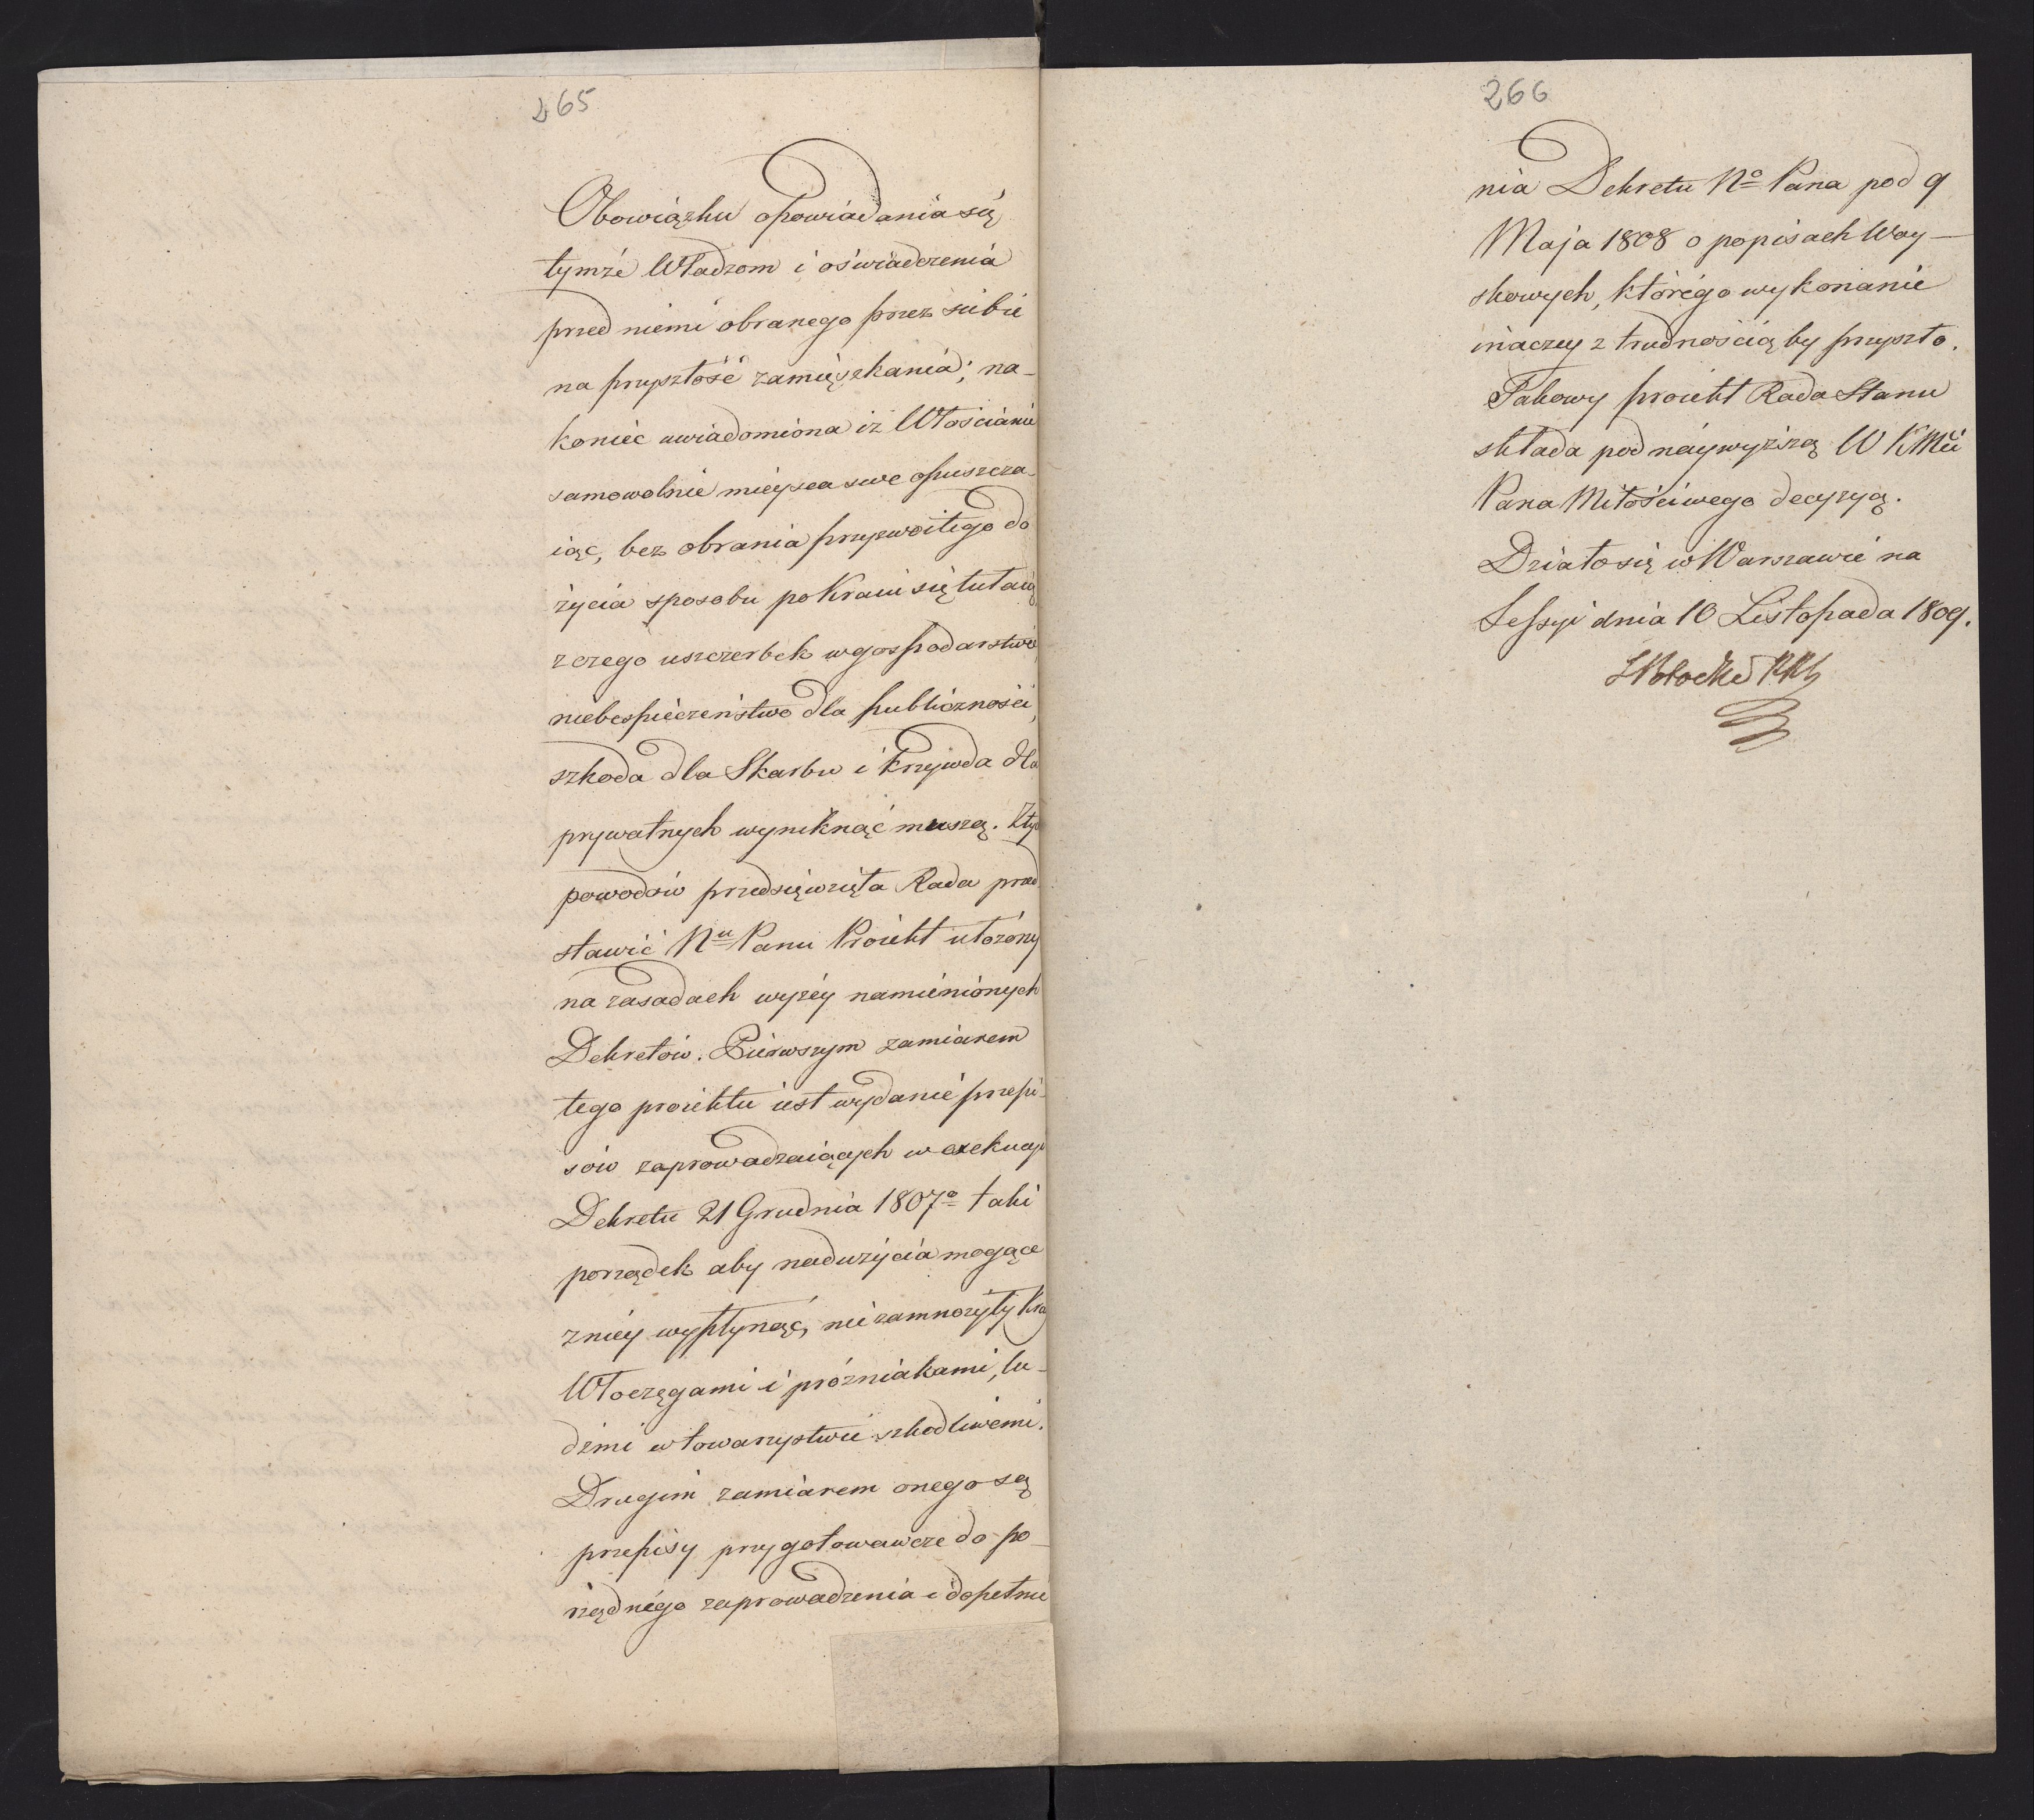 265
Obowiązku opowiadania się
tymże Władzom i oświadczenia
przed niemi obranego przez siebie
na przyszłość zamięszkania; na-
koniec uwiadomiona iż Włościanie
samowolnie mieysca swe opuszcza-
iąc, bez obrania przyzwoitego do
życia sposobu po Kraiu się tułaią,
z czego uszczerbek w gospodarstwie,
niebespieczeństwo dla publiczności,
szkoda dla Skarbu i krzywda dla
prywatnych wyniknąć muszą. Z tych
powodów przedsięwzięła Rada przed
stawić Nu Panu Proiekt ułożony
na zasadach wyżéy namienionych
Dekretów. Pierwszym zamiarem
tego proiektu iest wydanie przepi-
sów zaprowadzaiących w exekucyi
Dekretu 21 Grudnia 1807o taki
porządek aby nadużycia mogące
z niey wypłynąć, nie zamnożyły Kra
Włoczęgami i próżniakami, lu-
dźmi w towarzystwie szkodliwemi.
Drugim zamiarem onego są
przepisy przygotowawcze do po-
rządnégo zaprowadzenia i dopełnie
266
nia Dekretu No Pana pod 9
Maja 1808 o popisach Woy-
skowych, którégo wykonanie
inaczey z trudnością by przyszło.
Takowy proiekt Rada Stanu
składa pod náywyższą W K Mci
Pana Miłościwego decyzyą.
Działo się w Warszawie na
Sessyi dnia 10 Listopada 1809.